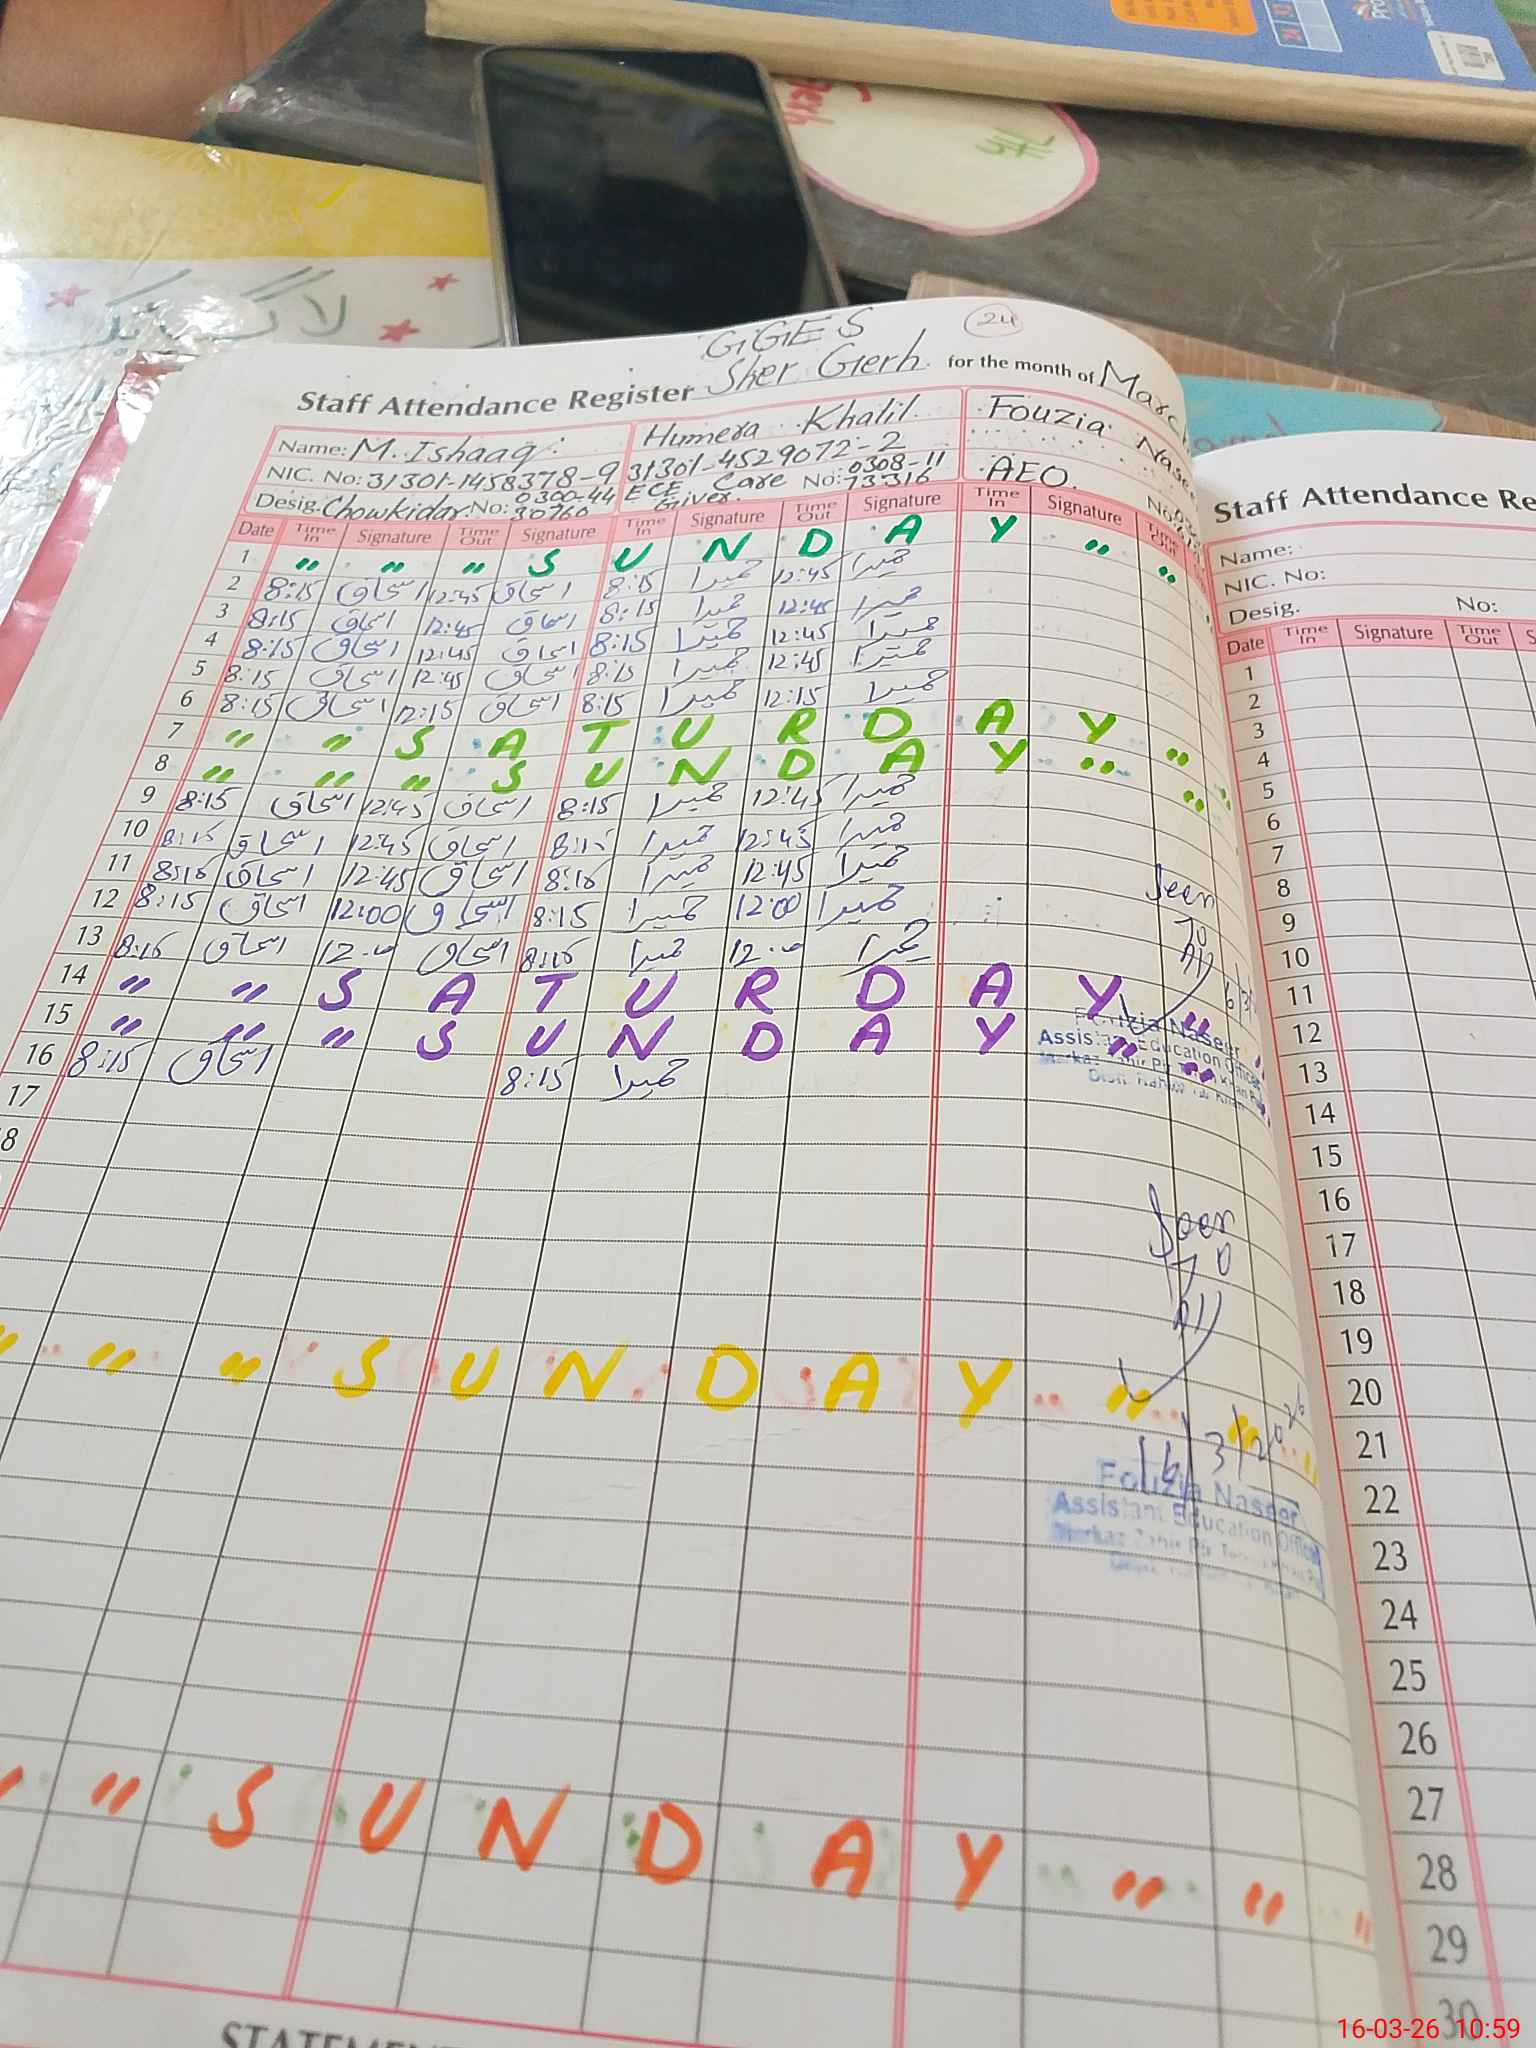 لاگ بک
GGES
24
Staff Attendance Register Sher Gerh. for the month of March
Name: M. Ishaaq. Humera Khalil. Fouzia Nasee
NIC. No: 31301-1458378-9 31301-4529072-2
Desig. Chowkidar. No: 0300-44 30760 ECE Care Giver. No: 0308-11 73316 AEO. No:
Date Time In Signature Time Out Signature Time In Signature Time Out Signature Time In Signature Time Out
1 " " " S U N D A Y " "
2 8:15 اسحاق 12:45 اسحاق 8:15 حمیرا 12:45 حمیرا
3 8:15 اسحاق 12:45 اسحاق 8:15 حمیرا 12:45 حمیرا
4 8:15 اسحاق 12:45 اسحاق 8:15 حمیرا 12:45 حمیرا
5 8:15 اسحاق 12:45 اسحاق 8:15 حمیرا 12:45 حمیرا
6 8:15 اسحاق 12:15 اسحاق 8:15 حمیرا 12:15 حمیرا
7 " " S A T U R D A Y "
8 " " " S U N D A Y " "
9 8:15 اسحاق 12:45 اسحاق 8:15 حمیرا 12:45 حمیرا
10 8:15 اسحاق 12:45 اسحاق 8:15 حمیرا 12:45 حمیرا
11 8:16 اسحاق 12:45 اسحاق 8:16 حمیرا 12:45 حمیرا
12 8:15 اسحاق 12:00 اسحاق 8:15 حمیرا 12:00 حمیرا
13 8:16 اسحاق 12:00 اسحاق 8:16 حمیرا 12:00 حمیرا
14 " " S A T U R D A Y "
15 " " " S U N D A Y " "
16 8:15 اسحاق 8:15 حمیرا
17
8
Seen
Fouzia Naseer
Assistant Education Officer
Seen
" " " S U N D A Y " "
16/3/2026
Fouzia Naseer
Assistant Education Officer
" " S U N D A Y " " "
STATEMENT
Staff Attendance Re
Name:
NIC. No:
Desig. No:
Date Time In Signature Time Out S
1
2
3
4
5
6
7
8
9
10
11
12
13
14
15
16
17
18
19
20
21
22
23
24
25
26
27
28
29
30
16-03-26 10:59